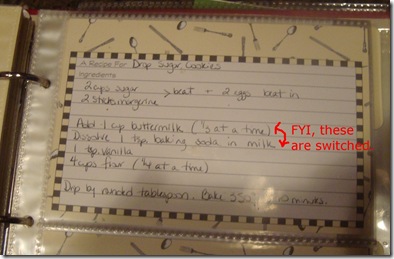 A Recipe For Drop Sugar Cookies
Ingredients
2 cups sugar > beat + 2 eggs beat in.
2 sticks margerine
Add 1 cup buttermilk (1/3 at a time)
FYI, these
Dissolve 1 tsp. baking soda in milk
are switched
1 tsp. vanilla
4 cups flour (1/4 at a time)
Drop by rounded tablespoon. Bake 350 10 minutes.